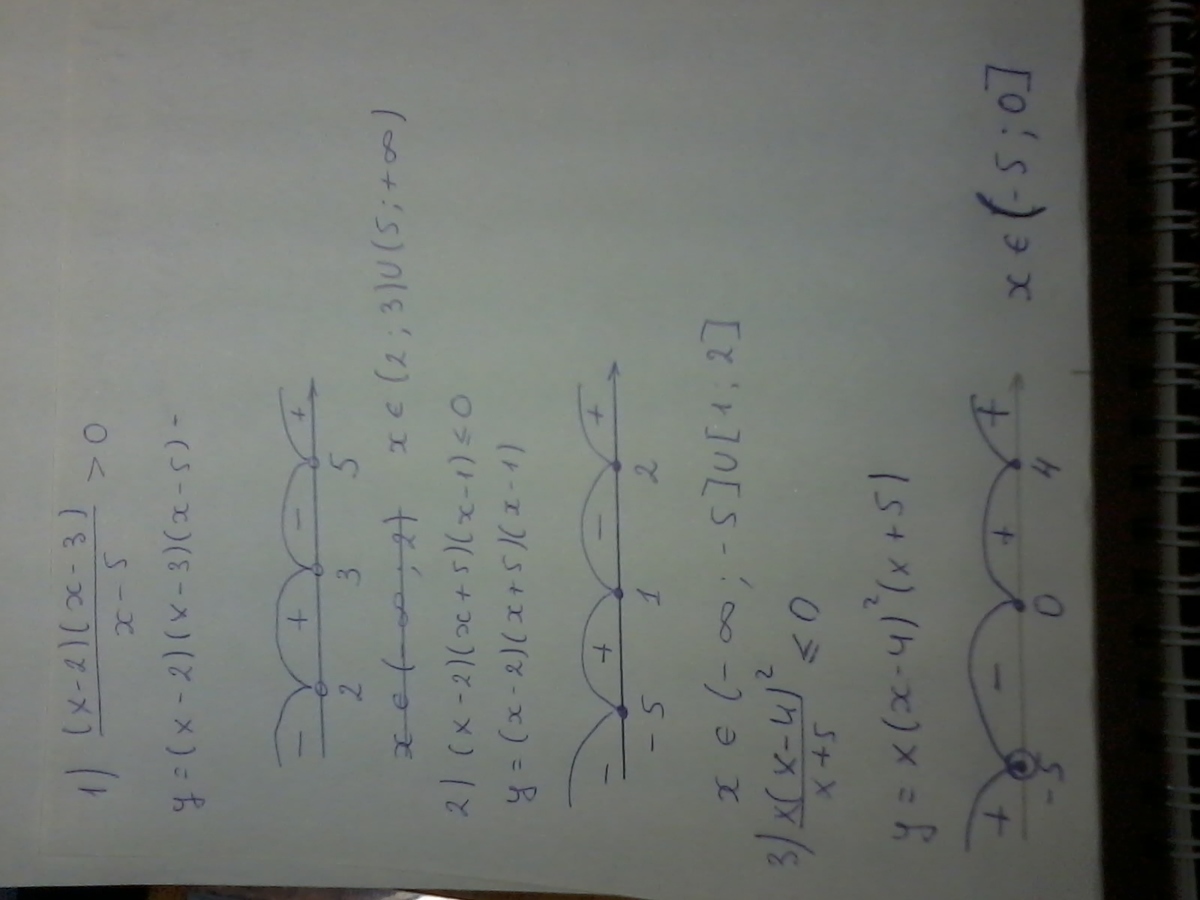 1) (x-2)(x-3) / x-5 > 0
y=(x-2)(x-3)(x-5)-
- + - +
2 3 5
x∈(-∞; 2) x∈(2;3)∪(5;+∞)
2) (x-2)(x+5)(x-1)≤0
y=(x-2)(x+5)(x-1)
- + - +
-5 1 2
x∈(-∞;-5]∪[1;2]
3) x(x-4)² / x+5 ≤ 0
y=x(x-4)²(x+5)
+ - + +
-5 0 4 x∈(-5;0]